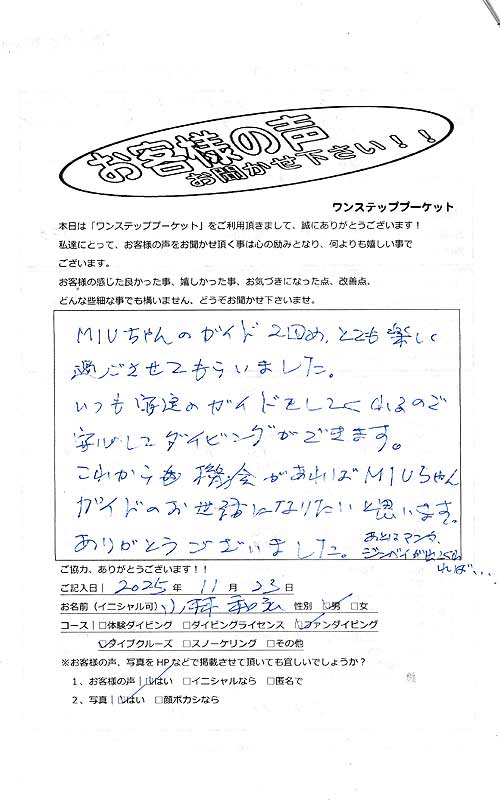 お客様の声
お聞かせ下さい！！
ワンステッププーケット
本日は「ワンステッププーケット」をご利用頂きまして、誠にありがとうございます！
私達にとって、お客様の声をお聞かせ頂く事は心の励みとなり、何よりも嬉しい事で
ございます。
お客様の感じた良かった事、嬉しかった事、お気づきになった点、改善点、
どんな些細な事でも構いません、どうぞお聞かせ下さいませ。
MIUちゃんのガイド2回め、とても楽しく
過ごさせてもらいました。
いつも安定のガイドをしてくれるので
安心してダイビングができます。
これからも機会があればMIUちゃん
ガイドのお世話になりたいと思います。
ありがとうございました。
あとはマンタ、
ジンベイが出てくれ
れば...
ご協力、ありがとうございます！！
ご記入日｜2025年 11月 23日
お名前（イニシャル可）小林 和宏 性別 □男 □女
コース｜□体験ダイビング □ダイビングライセンス □ファンダイビング
□ダイブクルーズ □スノーケリング □その他
※お客様の声、写真をHPなどで掲載させて頂いても宜しいでしょうか？
1、お客様の声｜□はい □イニシャルなら □匿名で
2、写真｜□はい □顔ボカシなら